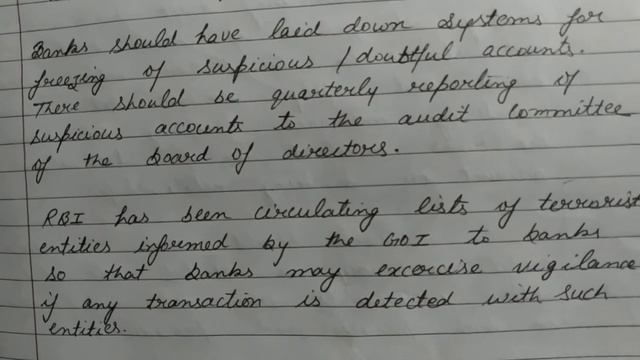 Banks should have laid down systems for
freezing of suspicious / doubtful accounts.
There should be quarterly reporting if
suspicious accounts to the audit committee
of the board of directors.
RBI has been circulating lists of terrorist
entities informed by the GOI to banks
so that banks may excercise vigilance
if any transaction is detected with such
entities.